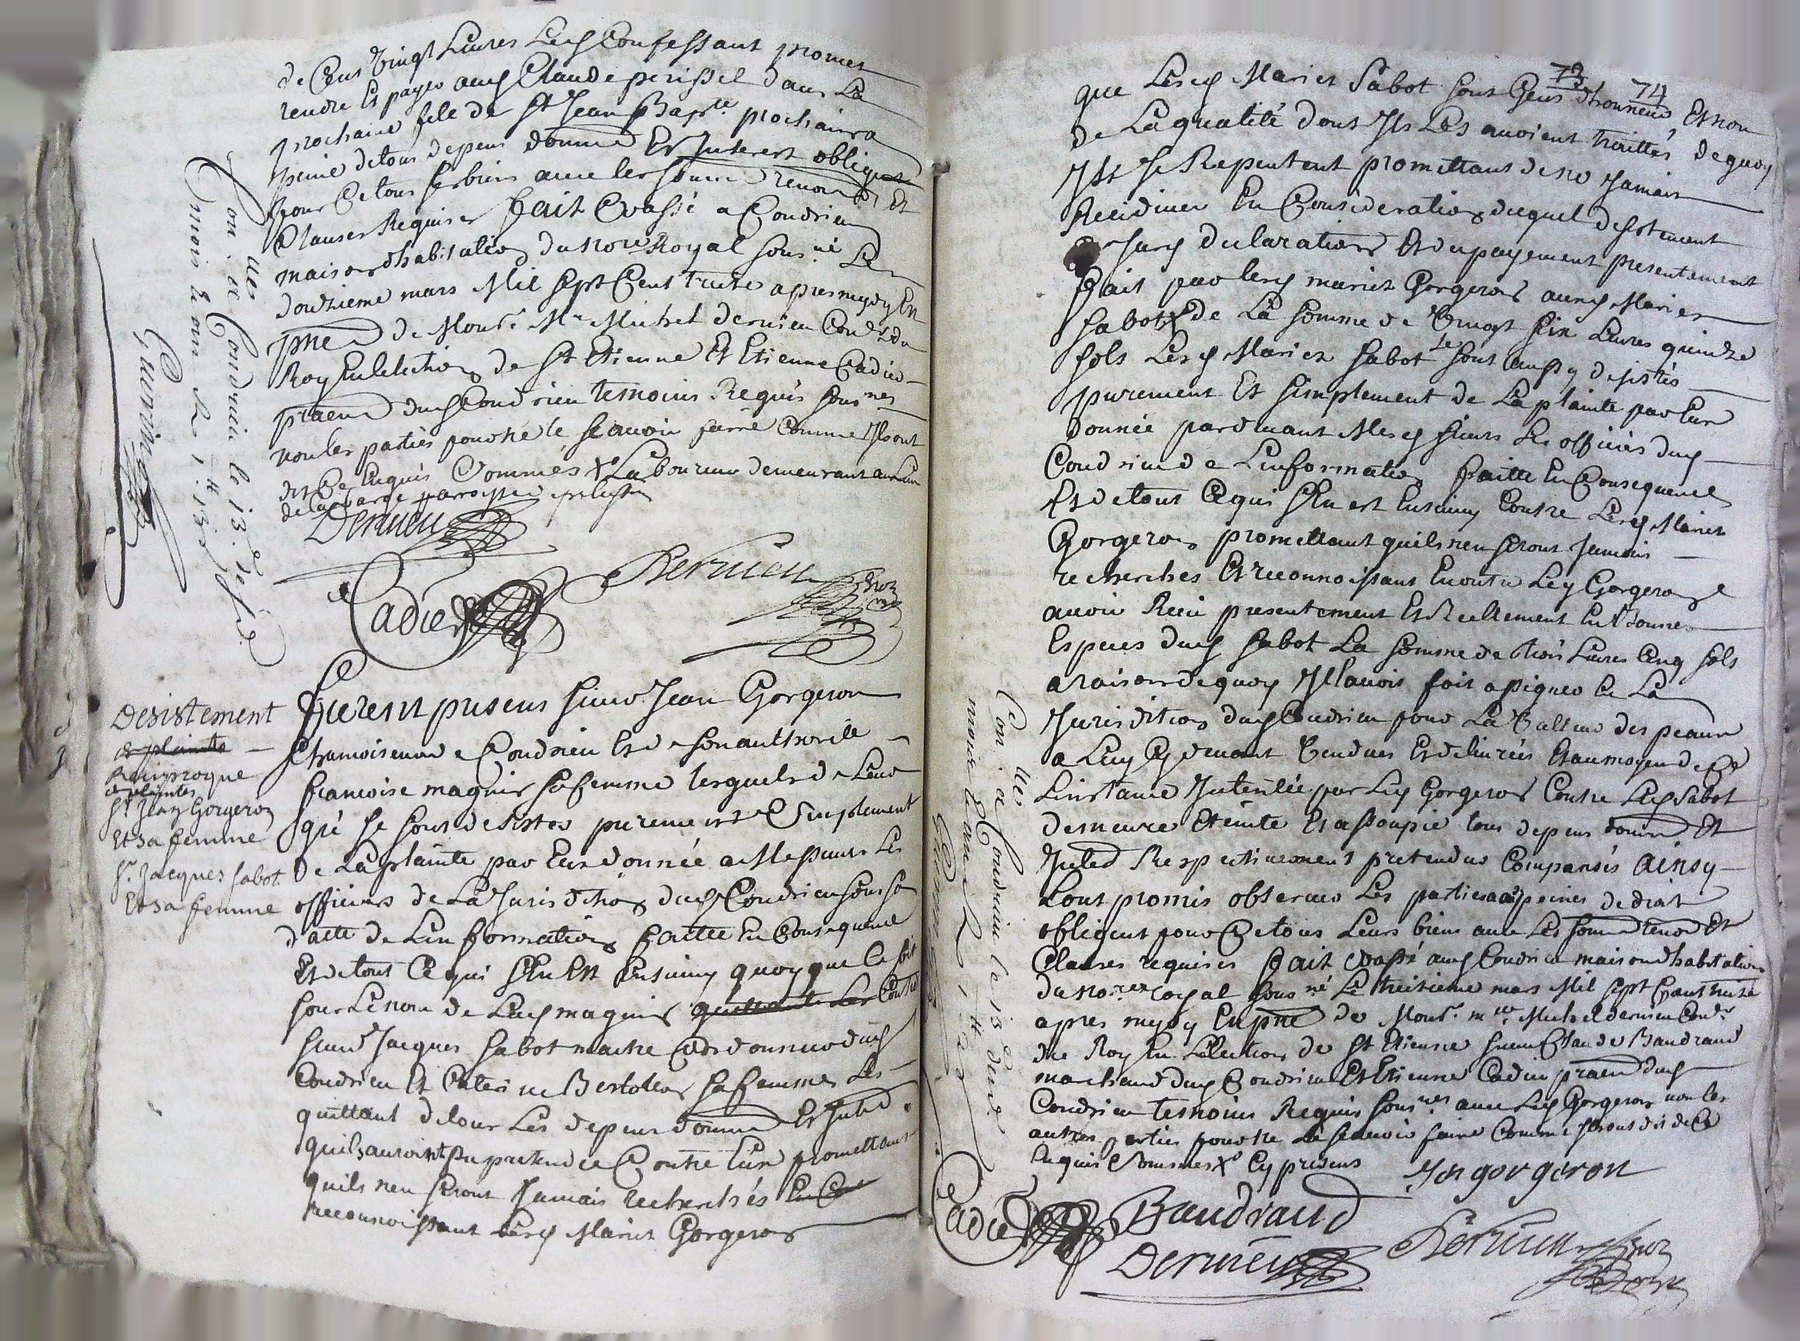 de Cent Vingt Livres Led Confessant promet
rendre Et payer aud Claude perissel dans La
prochaine fete de St Jean Bapte prochain a
peine de tous depens domme Et Interest obligent
pour Ce tous ses biens avec les soume renon Et
Clauses Requises fait Et passé a Condrieu
maison d'habitation du nore Royal sous né Le
douzieme mars Mil sept Cent trente apres mydy En
pnce de Monsr Me Michel dernieu Coner du
Roy En Lelection de St Etienne Et Etienne Cadier
praen dud Condrieu temoins Requis sous nes
non les parties pour ne le scavoir faire Comme Ils ont
dit De Enquis Sommés Laboureur demeurant au Lieu
de
Dernieu
Cadier
Con. a Condrieu le 13. de
mois & an R 1.# 13s
Desistement
Reciproque
de plaintes
Sr Jean Gorgeron
Et sa femme
Sr. Jacques Sabot
Et sa femme
Furent presens sieur Jean Gorgeron
Chamoiseur de Condrieu Et de son authorité
francoise magnis sa femme lesquels de Leur
gré se sont desistes purement & simplement
de La plainte par Eux donnée a Messieurs Les
officiers de La Jurisdiction dud Condrieu sous sa
datte de Linformation faitte En Consequence
Et de tout Ce qui sEn Est Ensuivy quoy que Ce soit
sous Le nom de Lad magnis Contre
sieur Jacques Sabot maitre Cordonnier dud
Condrieu Et Caterine Bertolon sa femme Les
quittant de tous Les depens domme Et Inted
quils auroint pu pretendre Contre Eux promettant
quils nen seront Jamais recherchés
reconnoissant Lesd Mariés Gorgeron
73 74
que Lesd Mariés Sabot sont Gens d'honneur, Et non
de La qualité dont Ils Les avoient traittés, de quoy
Ils se Repentent promettant de ne Jamais
Recidiver En Consideration duquel desistement
Et du payement presentement
fait par lesd mariés Gorgeron auxd Mariés
Sabot de La somme de Vingt six Livres quinze
sols Lesd Mariés Sabot se sont aussy desistés
purement Et simplement de La plainte par Eux
donnée pardevant Mesd sieurs Les officiers dud
Condrieu de Linformation faitte En Consequence
Et de tout Ce qui sEn est Ensuivy Contre Lesd Mariés
Gorgeron promettant quils nen seront Jamais
recherches Et reconnoissant En outre Led Gorgeron
avoir Reeu presentement Et Reellement En bonnes
Especes dud Sabot La somme de trois Livres Cinq sols
a raison de quoy Il lauoit fait assigner En La
Jurisdiction dud Condrieu pour La Valleur des peaux
a Luy Cy devant Vendues Et delivrées Et au moyen de Ce
Linstance Intentée par Led Gorgeron Contre Led Sabot
demeure Eteinte Et assoupie tous depens domm Et
Inted Respectivement pretendus Compensés Ainsy
Lont promis observer Les parties a peines de droit
obligent pour Ce tous Leurs biens avec Les soume renon Et
Clauses requises fait Et passé aud Condrieu maison d'habitation
du nore royal sous né Le treizieme mars Mil sept Cent trente
apres mydy En pnce de Monsr Me Michel dernieu Coner
du Roy En Lelection de St Etienne sieur Claude Baudrand
marchand dud Condrieu Et Etienne Cadier praen dud
Condrieu temoins Requis sous nes avec Led Gorgeron non les
autres parties pour ne Le scavoir faire Comme Ils ont dit de Ce
Enquis Sommés Cy presens
Gorgeron
Cadier
Baudrand
Dernieu
Con. a Condrieu le 13 dud
mois & an R 1#